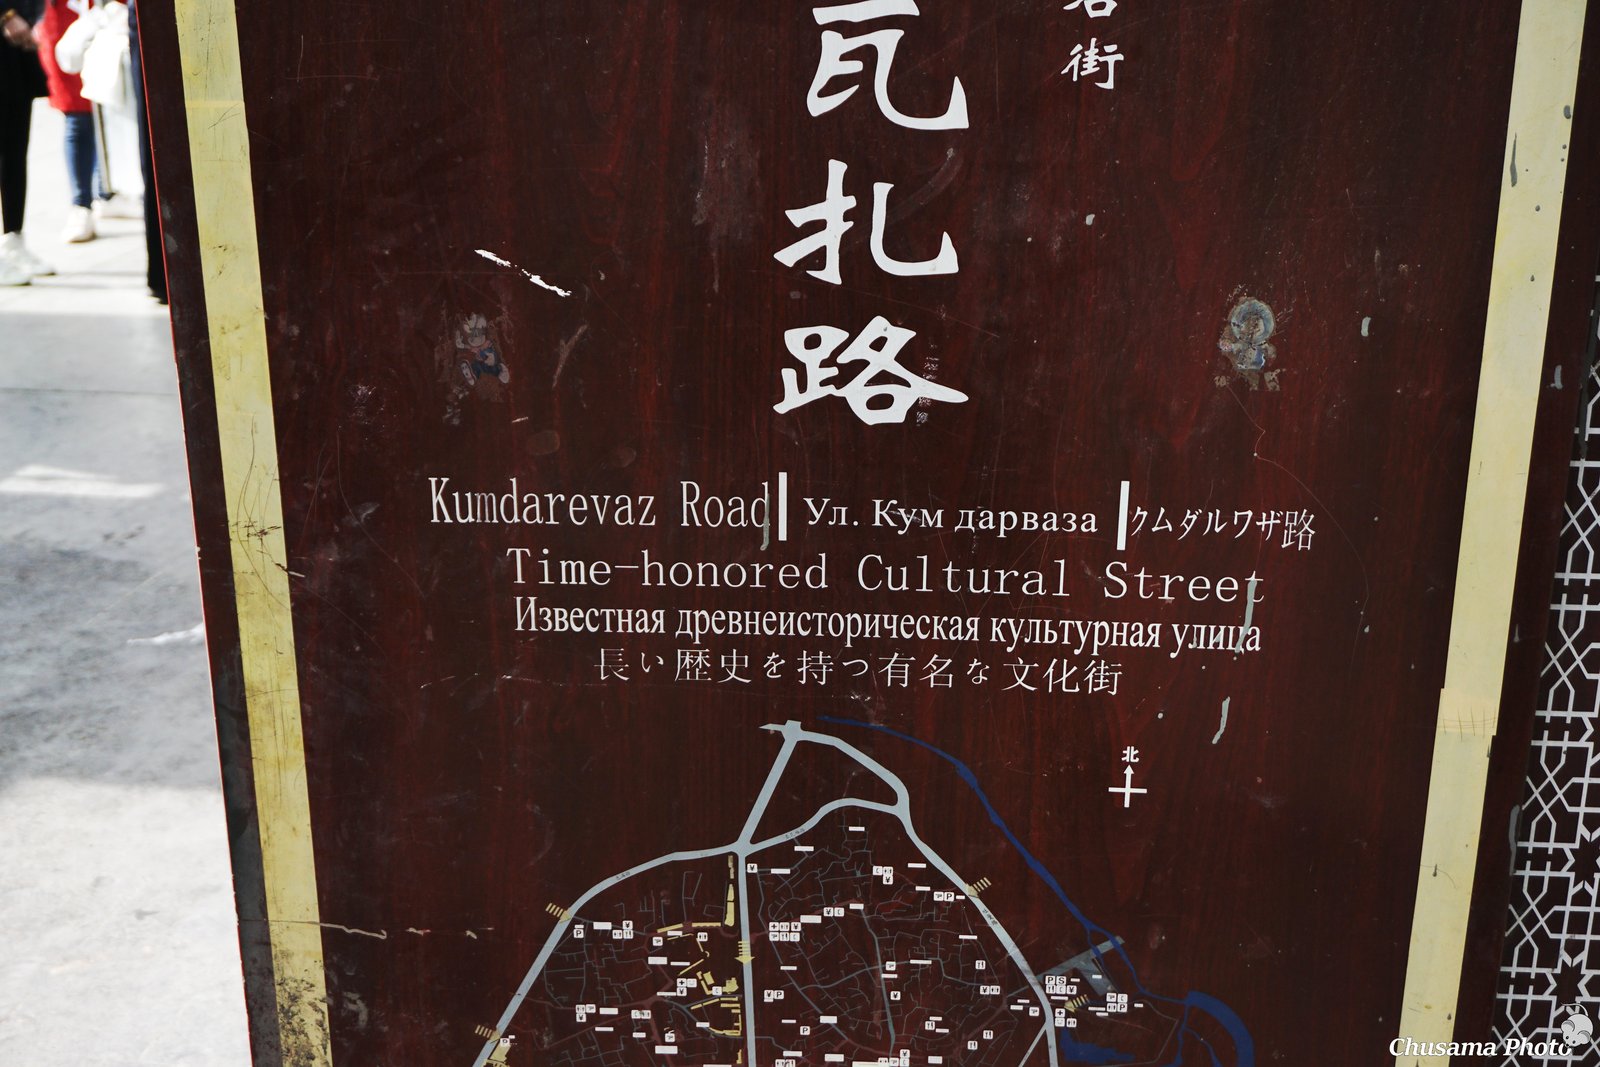 街
瓦扎路
Kumdarevaz Road | Ул. Кум дарваза | クムダルワザ路
Time-honored Cultural Street
Известная древнеисторическая культурная улица
長い歴史を持つ有名な文化街
北
Chusama Photo